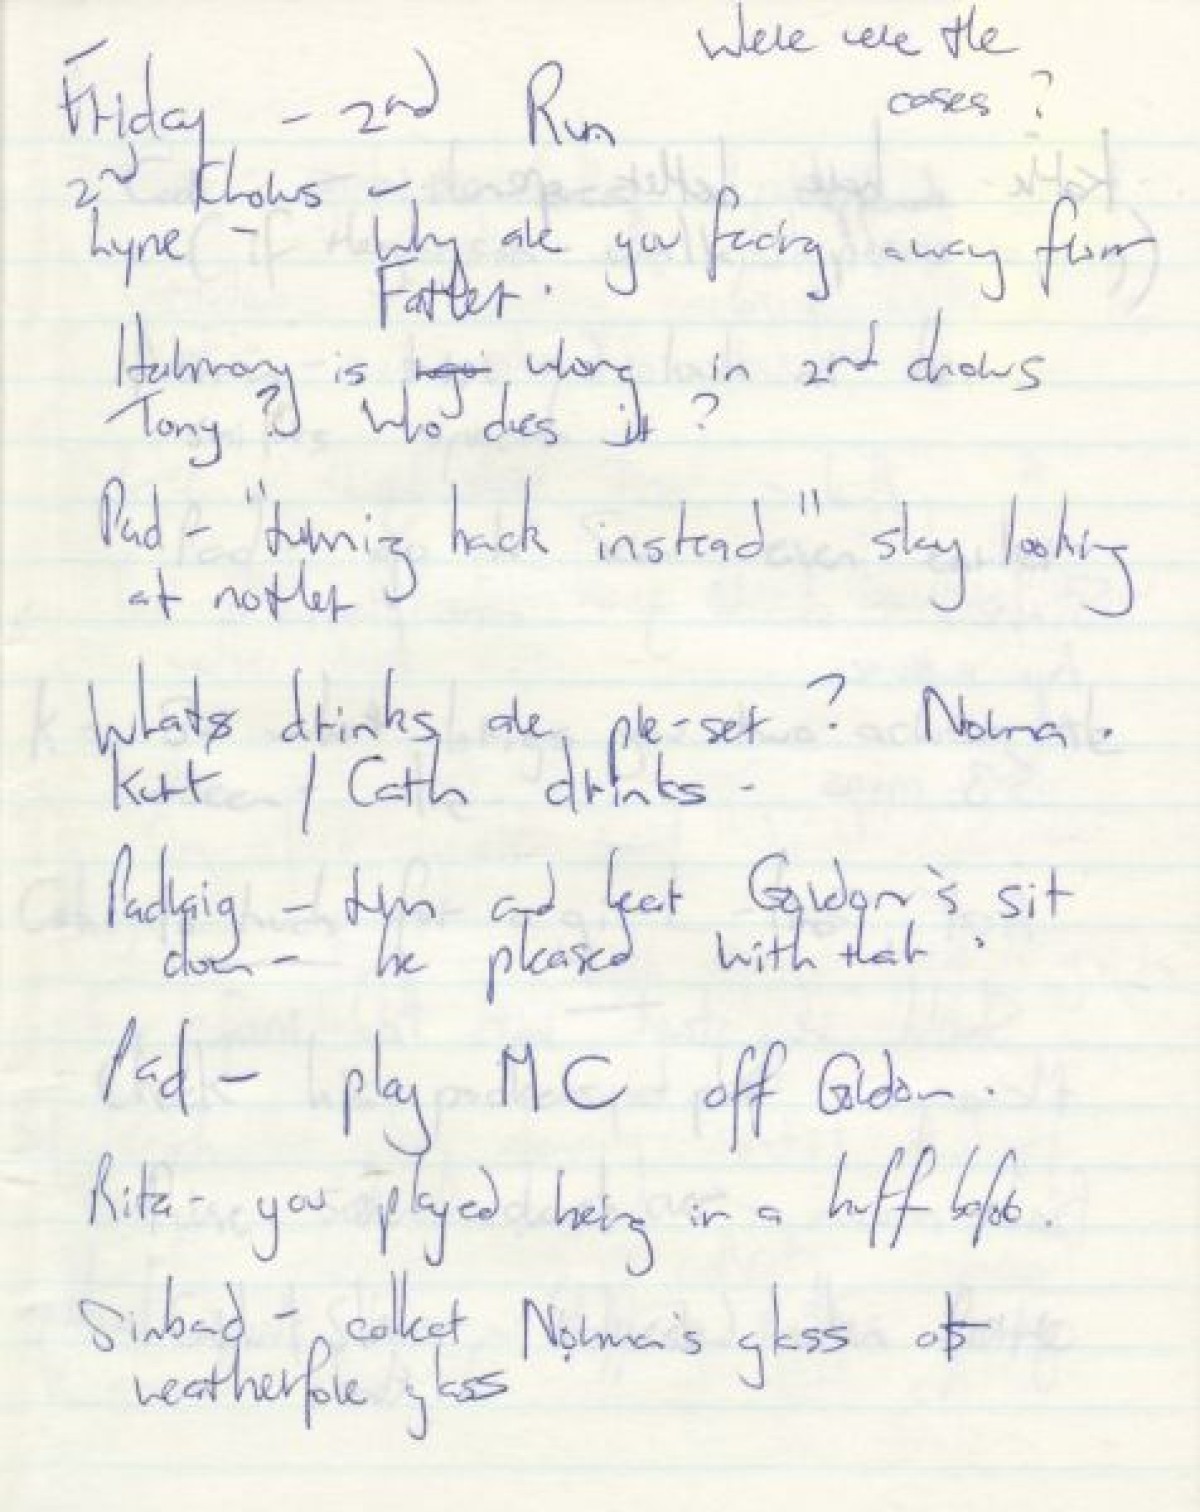 Where were the
cases?
Friday - 2nd Run
2nd Chorus -
Lyne - Why are you facing away from
Father.
Harmony is wrong in 2nd chorus
Tony? Who dies it?
Pad - "turning back instead" stay looking
at mother
Whats drinks are pre-set? Norma.
Kurt / Cath drinks -
Padraig - turn and hear Gordon's sit
down - be pleased with that.
Pad - play MC off Gordon.
Rita - you played being in a huff before.
Sinbad - collect Norma's glass
weatherpole glass